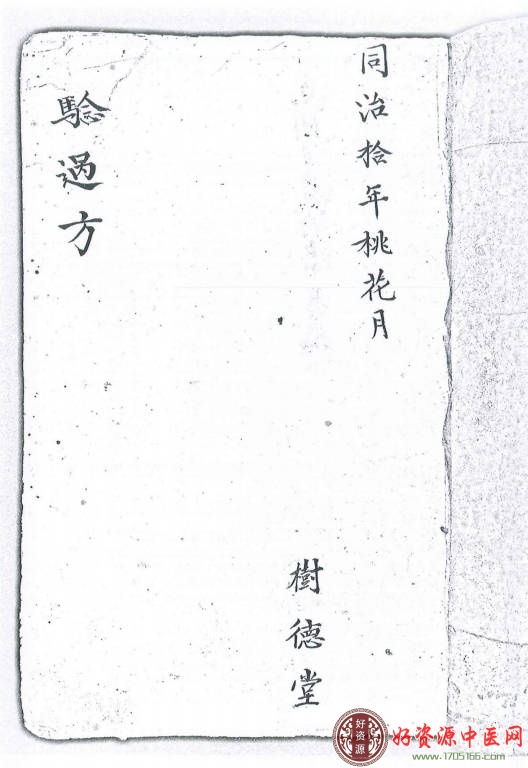 同治拾年桃花月
樹德堂
驗過方
好资源
好资源中医网
www.1705166.com